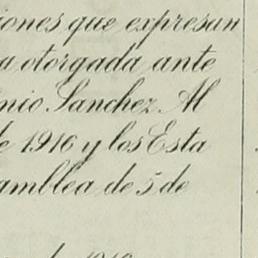 iones que expresan
a otorgada ante
nio Sanchez Al
de 1916 y los Esta
amblea de 5 de
de 1919